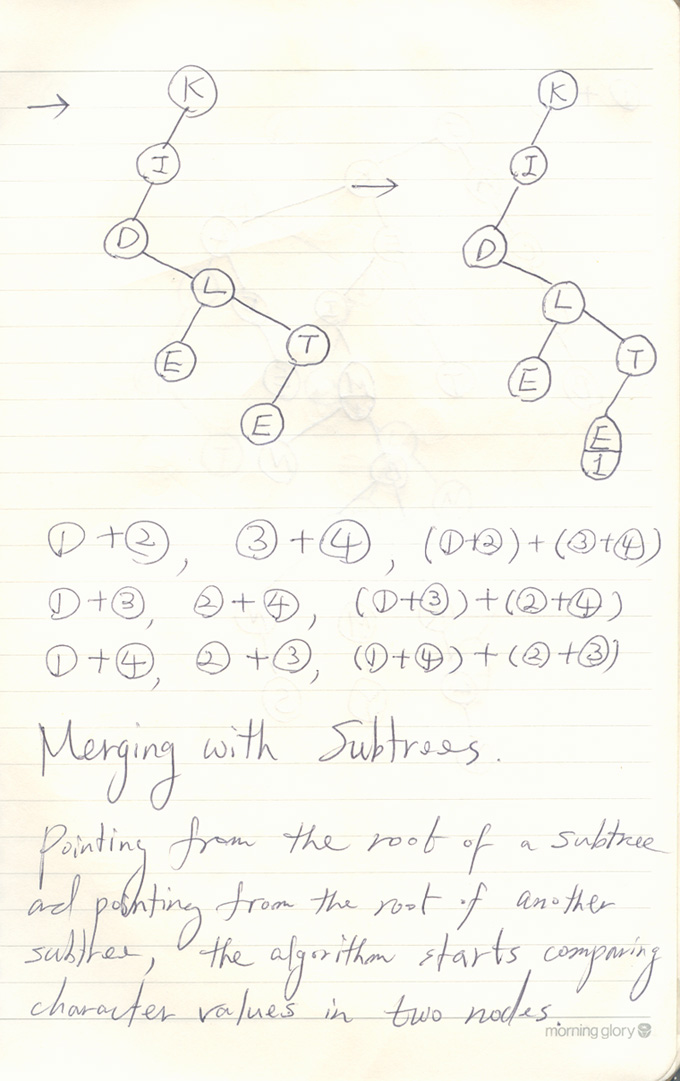 → K K
I I
→
D D
L L
E T E T
E E
1
① + ②, ③ + ④, (①+②) + (③+④)
① + ③, ② + ④, (①+③) + (②+④)
① + ④, ② + ③, (①+④) + (②+③)
Merging with Subtrees.
Pointing from the root of a subtree
and pointing from the root of another
subtree, the algorithm starts comparing
character values in two nodes.
morning glory